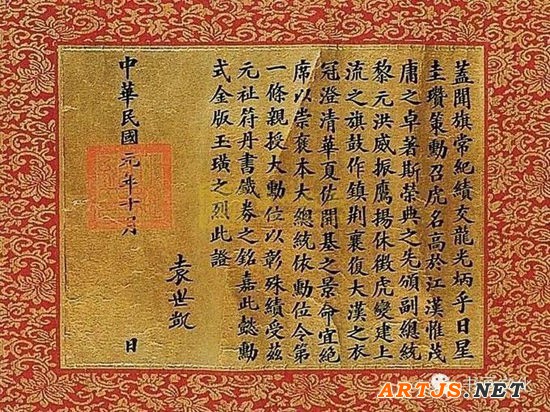 蓋聞旗常紀績交龍光炳乎日星
圭瓚策勳召虎名高於江漢惟茂
庸之卓著斯榮典之先頒副總統
黎元洪威振鷹揚休徵虎變建上
流之旗鼓作鎮荆襄復大漢之衣
冠澄清華夏佐開基之景命宜絶
席以崇褒本大總統依勳位令第
一條親授大勳位以彰殊績受茲
元祉符丹書鐵券之銘嘉此懿勳
式金版玉璜之烈此證
袁世凱
中華民國元年十月 日
ARTJS.NET